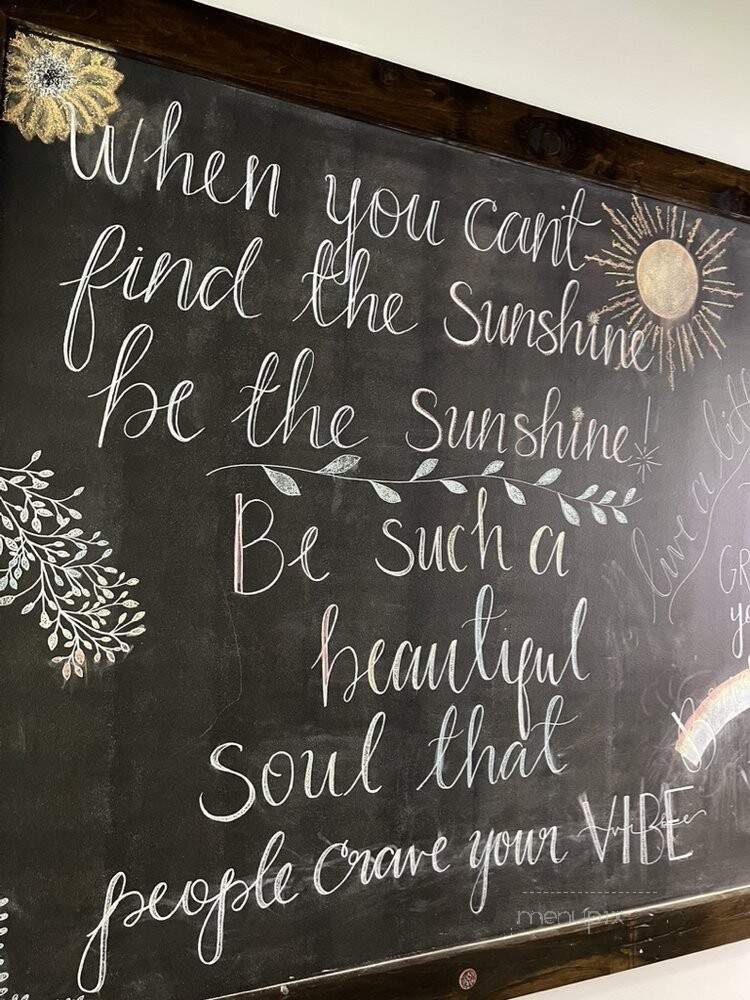 When you can't
find the Sunshine
be the Sunshine!
Be such a
beautiful
Soul that
people crave your VIBE
live a
GR
menupix